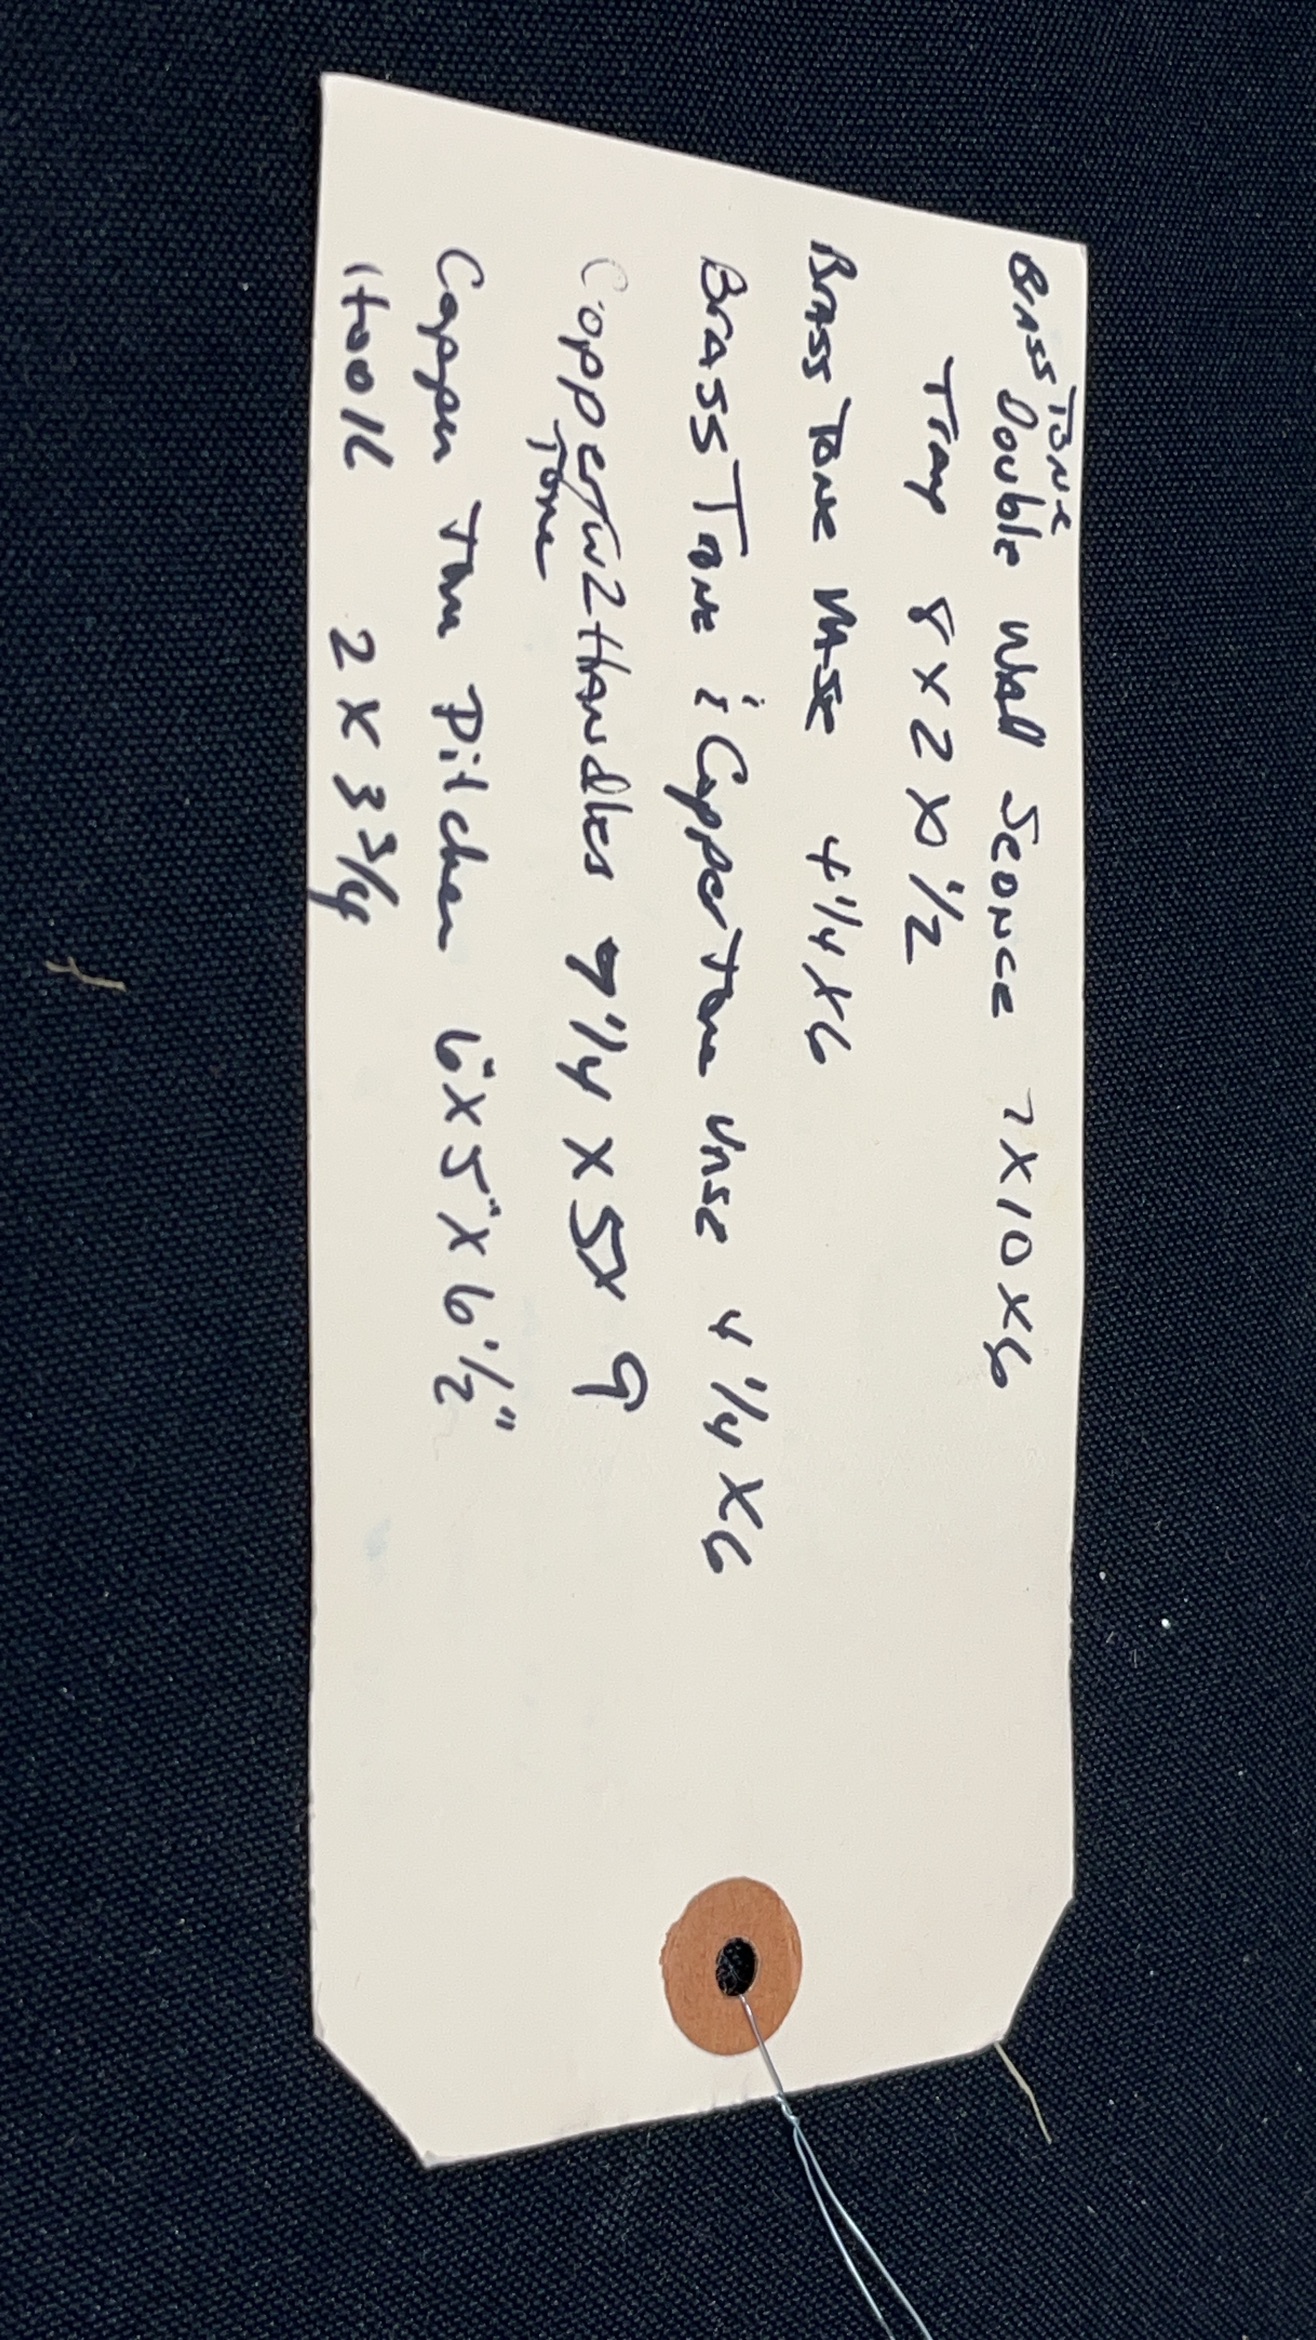 Brass Tone Double Wall Sconce 7x10x6
Tray 8x2x1/2
Brass Tone Vase 4 1/4 x6
Brass Tone & Copper Tone Vase 4 1/4 x6
Copper Tone w 2 Handles 9 1/4 x 5 x 9
Copper Tone Pitcher 6"x5"x6 1/2"
Hook 2x3 3/4